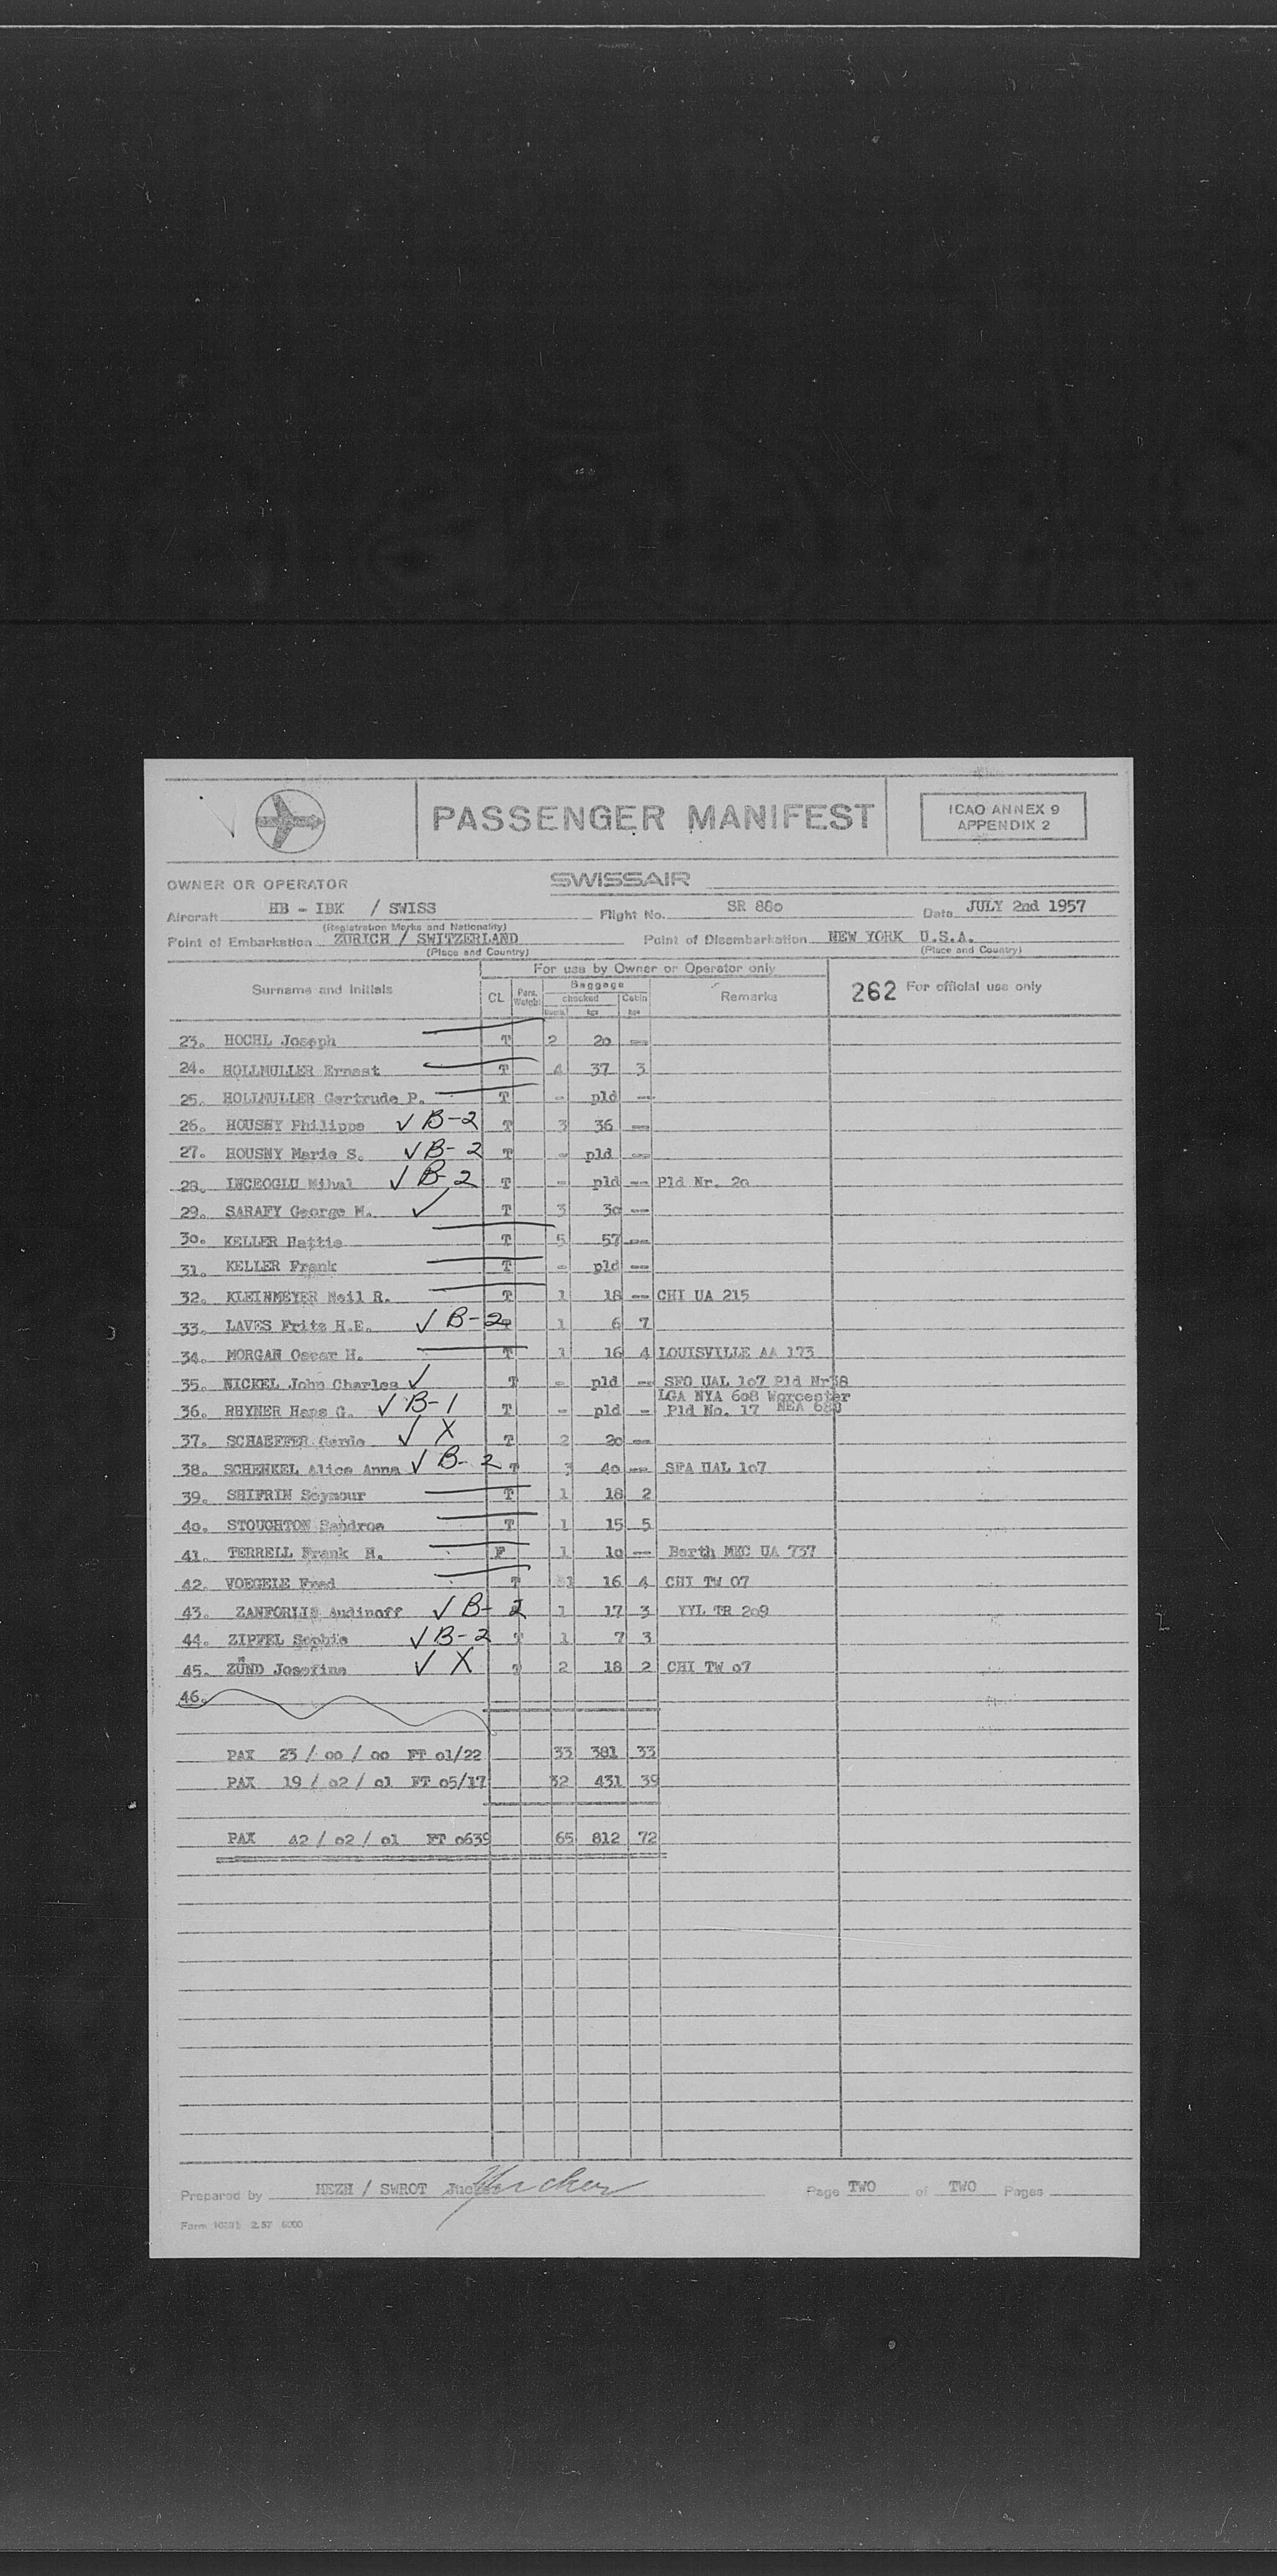 PASSENGER MANIFEST
ICAO ANNEX 9
APPENDIX 2
OWNER OR OPERATOR SWISSAIR
Aircraft HB - IBK / SWISS Flight No. SR 880 Date JULY 2nd 1957
(Registration Marks and Nationality)
Point of Embarkation ZURICH / SWITZERLAND Point of Disembarkation NEW YORK U.S.A.
(Place and Country) (Place and Country)
For use by Owner or Operator only
Surname and Initials CL Pass. Weight Baggage checked kgs Cabin kgs Remarks 262 For official use only
23. HOCHL Joseph T 2 20 --
24. HOLLMULLER Ernest T 4 37 3
25. HOLLMULLER Gertrude P. T - pld --
26. HOUSNY Philippe ✓ B-2 T 3 36 --
27. HOUSNY Marie S. ✓ B-2 T - pld --
28. INCEOGLU Mihal ✓ B-2 T - pld -- Pld Nr. 2o
29. SARAFY George M. ✓ T 3 3o --
30. KELLER Hattie T 5 57 --
31. KELLER Frank T - pld --
32. KLEINMEYER Neil R. T 1 18 -- CHI UA 215
33. LAVES Fritz H.E. ✓ B-2 T 1 6 7
34. MORGAN Oscar H. T 1 16 4 LOUISVILLE AA 173
35. NICKEL John Charles ✓ T - pld -- SFO UAL 1o7 Pld Nr38
LGA NYA 6o8 Worcester
36. RHYNER Hans G. ✓ B-1 T - pld - Pld No. 17 NEA 680
37. SCHAEFFER Gerda ✓ X T 2 2o --
38. SCHENKEL Alice Anna ✓ B-2 T 3 4o -- SFA UAL 1o7
39. SHIFRIN Seymour T 1 18 2
4o. STOUGHTON Sandroe T 1 15 5
41. TERRELL Frank H. F 1 1o -- Berth MEC UA 737
42. VOEGELE Fred T 1 16 4 CHI TW 07
43. ZANFORLIS Audinoff ✓ B-2 1 17 3 YYL TR 2o9
44. ZIPFEL Sophie ✓ B-2 T 1 7 3
45. ZÜND Josefine ✓ X T 2 18 2 CHI TW o7
46.
PAX 23 / oo / oo FT o1/22 33 381 33
PAX 19 / o2 / o1 FT o5/17 32 431 39
PAX 42 / o2 / o1 FT o639 65 812 72
Prepared by HEZH / SWROT Page TWO of TWO Pages